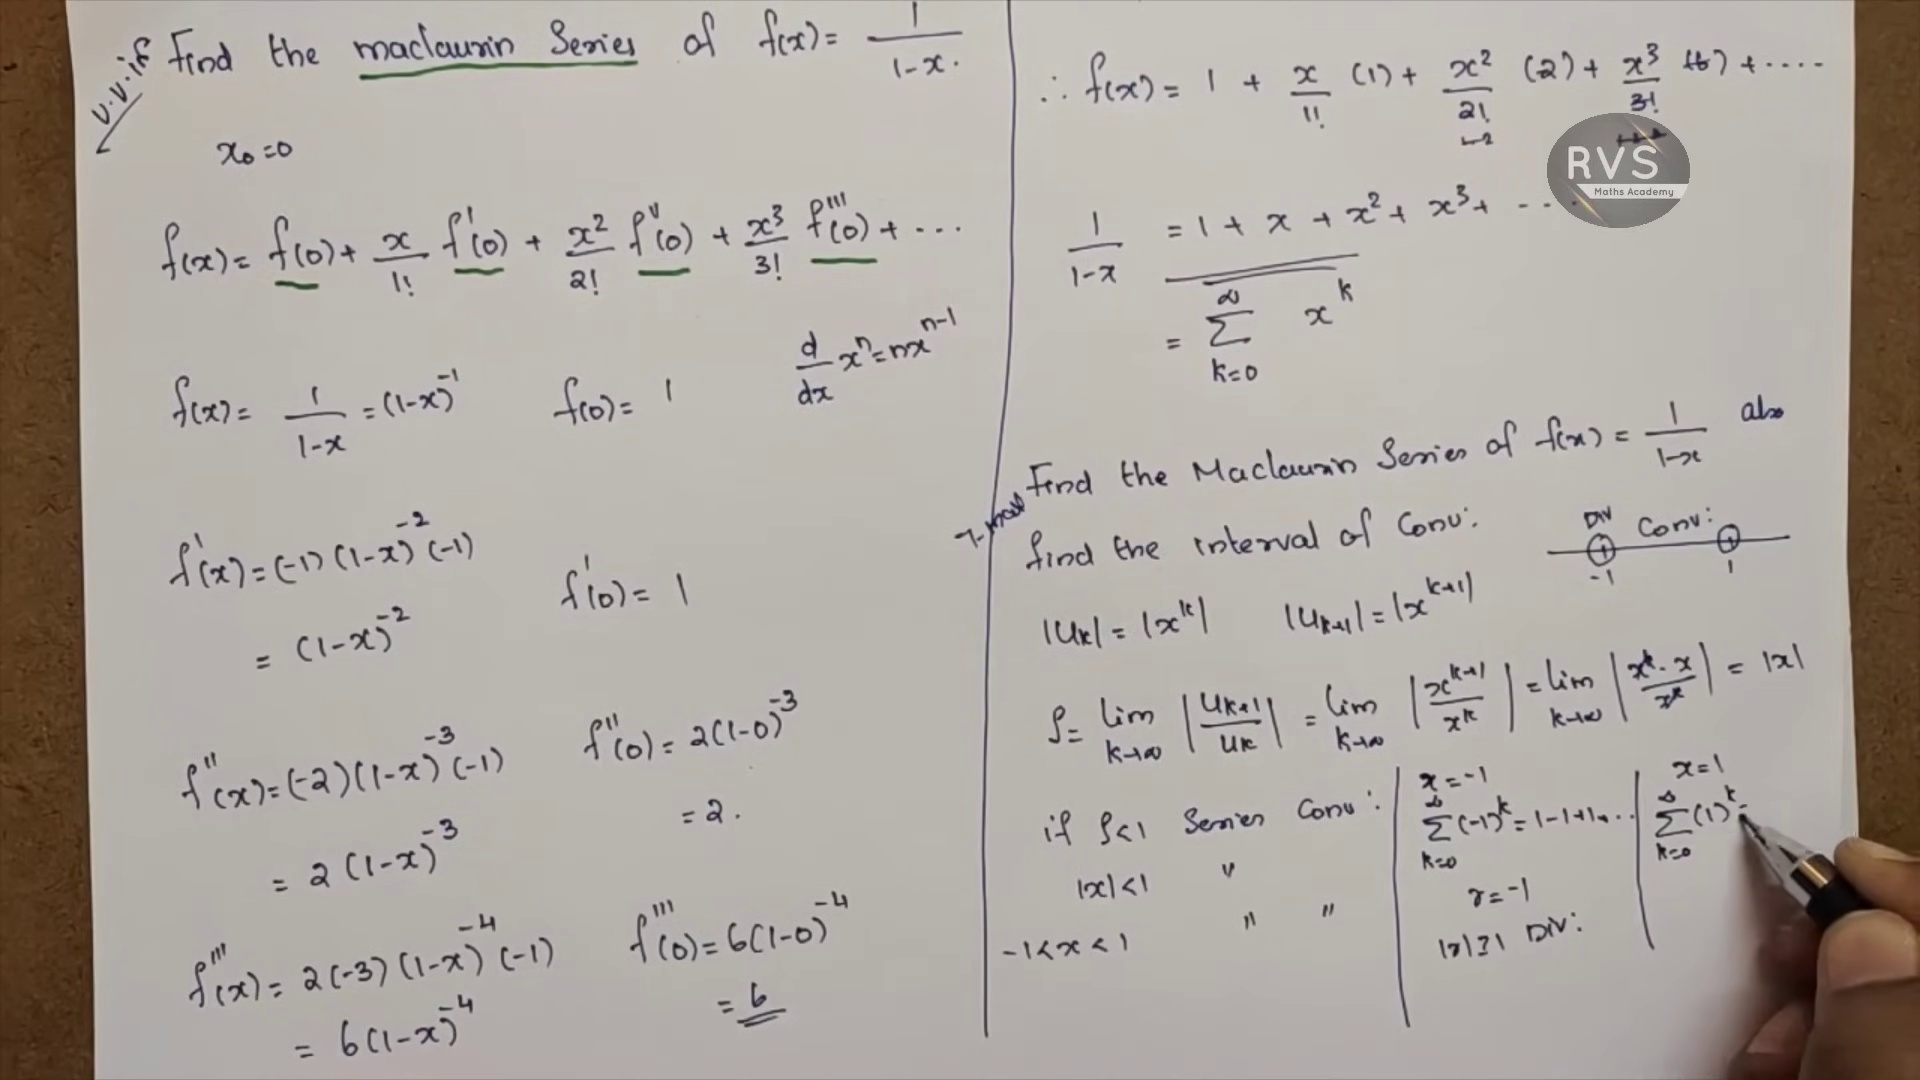 v.v.if Find the maclaurin Series of f(x) = 1/(1-x).
x₀=0
f(x) = f(0) + x/1! f'(0) + x²/2! f''(0) + x³/3! f'''(0) + ...
d/dx xⁿ = nxⁿ⁻¹
f(x) = 1/(1-x) = (1-x)⁻¹ f(0) = 1
f'(x) = (-1)(1-x)⁻²(-1) f'(0) = 1
= (1-x)⁻²
f''(x) = (-2)(1-x)⁻³(-1) f''(0) = 2(1-0)⁻³
= 2(1-x)⁻³ = 2.
f'''(x) = 2(-3)(1-x)⁻⁴(-1) f'''(0) = 6(1-0)⁻⁴
= 6(1-x)⁻⁴ = 6
∴ f(x) = 1 + x/1! (1) + x²/2! (2) + x³/3! (6) + ....
RVS
Maths Academy
1/(1-x) = 1 + x + x² + x³ + ...
= ∞ Σ k=0 xᵏ
Find the Maclaurin Series of f(x) = 1/(1-x) also
find the interval of Conv:
Div Conv:
-1 1
|uₖ| = |xᵏ| |uₖ₊₁| = |xᵏ⁺¹|
ρ = lim k→∞ |uₖ₊₁/uₖ| = lim k→∞ |xᵏ⁺¹/xᵏ| = lim k→∞ |xᵏ·x/xᵏ| = |x|
if ρ<1 Series Conv:
|x|<1 "
-1<x<1 " "
x=-1
∞ Σ k=0 (-1)ᵏ = 1-1+1...
r=-1
|r|≥1 Div:
x=1
∞ Σ k=0 (1)ᵏ =